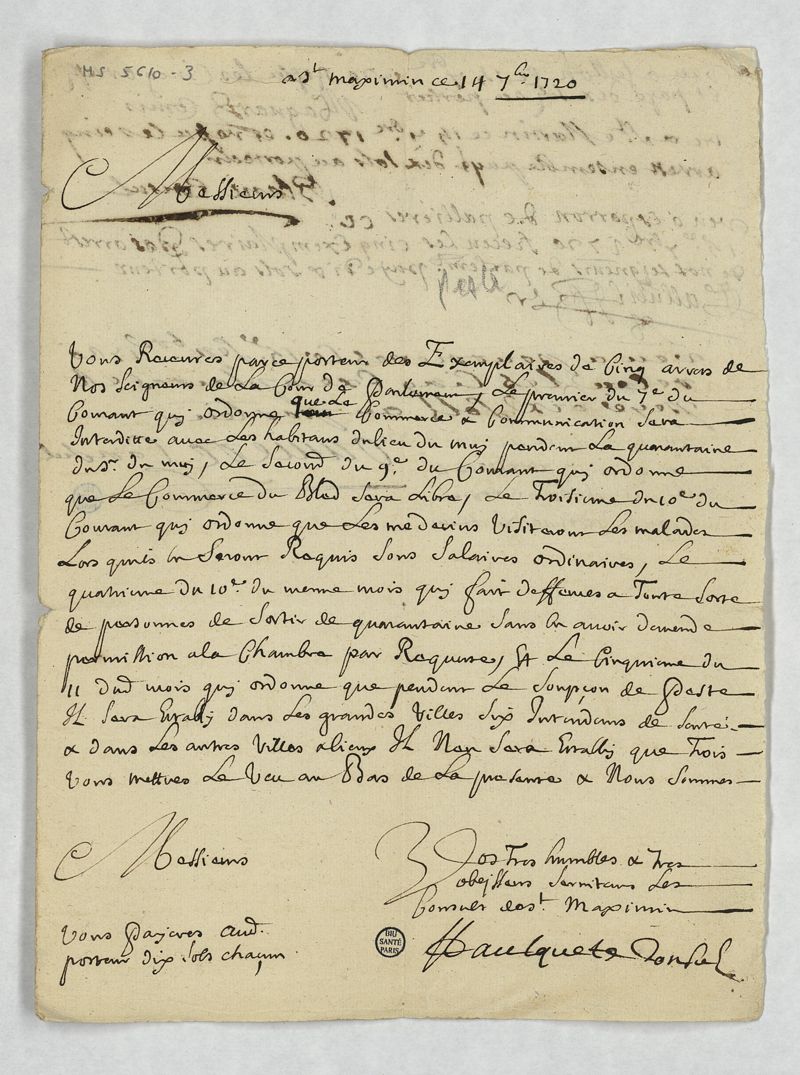 MS 5610-3
a St Maximin ce 14 7bre 1720
Messieurs
Vous Recevres par ce porteur des Exemplaires de Cinq arrets de
Nos Seigneurs de La Cour de Parlement, Le premier du 7e du
Courant quj ordonne que Le Commerce & Communication Sera
Interditte avec Les habitans du lieu du muj pendent La quarantaine
dud sr. du muj, Le Second du 9e du Courant quj ordonne
que Le Commerce du Bled Sera Libre, Le Troisieme du 10e du
Courant quj ordonne que Les medecins Visiteront Les malades
Lors quils en Seront Requis Sous Salaires ordinaires, Le
quatrieme du 10e du mesme mois quj fait deffences a Toute Sorte
de personnes de Sortir de quarantaine Sans en avoir demende
permission a la Chambre par Requeste, Et Le Cinquieme du
11 dud mois quj ordonne que pendent Le Soupçon de Peste
Il Sera Establj dans Les grandes Villes Six Intendens de Santé
& dans Les autres Villes a lieux Il Nen Sera Establj que Trois
Vous mettres Le Veu au Bas de La presente & Nous Sommes
Messieurs
Vos Tres humbles & Tres
obeissens Serviteurs Les
Consuls de St Maximin
Vous Payeres aud.
porteur dix Sols chacun
BIU
SANTÉ
PARIS